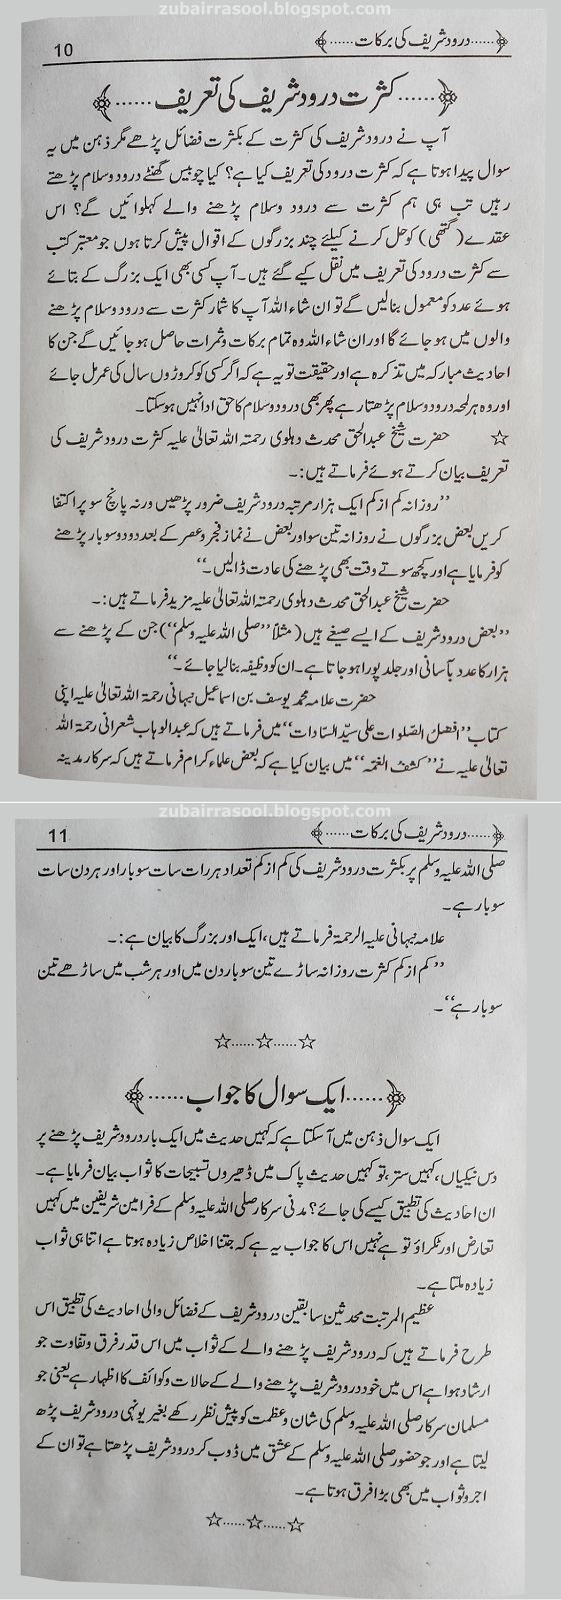 zubairrasool.blogspot.com
10 ﴿......درود شریف کی برکات......﴾
﴿...... کثرت درود شریف کی تعریف ......﴾
آپ نے درود شریف کی کثرت کے بکثرت فضائل پڑھے مگر ذہن میں یہ
سوال پیدا ہوتا ہے کہ کثرت درود کی تعریف کیا ہے؟ کیا چوبیس گھنٹے درود و سلام پڑھتے
رہیں تب ہی ہم کثرت سے درود وسلام پڑھنے والے کہلوائیں گے؟ اس
عقدے (گتھی) کو حل کرنے کیلئے چند بزرگوں کے اقوال پیش کرتا ہوں جو معتبر کتب
سے کثرت درود کی تعریف میں نقل کیے گئے ہیں۔ آپ کسی بھی ایک بزرگ کے بتائے
ہوئے عدد کو معمول بنالیں گے تو ان شاء اللہ آپ کا شمار کثرت سے درود و سلام پڑھنے
والوں میں ہو جائے گا اور ان شاء اللہ وہ تمام برکات وثمرات حاصل ہو جائیں گے جن کا
احادیث مبارکہ میں تذکرہ ہے اور حقیقت تو یہ ہے کہ اگر کسی کو کروڑوں سال کی عمر مل جائے
اور وہ ہر لمحہ درود و سلام پڑھتا رہے پھر بھی درود و سلام کا حق ادا نہیں ہو سکتا۔
☆ حضرت شیخ عبدالحق محدث دہلوی رحمتہ اللہ تعالیٰ علیہ کثرت درود شریف کی
تعریف بیان کرتے ہوئے فرماتے ہیں:۔
’’روزانہ کم از کم ایک ہزار مرتبہ درود شریف ضرور پڑھیں ورنہ پانچ سو پر اکتفا
کریں بعض بزرگوں نے روزانہ تین سو اور بعض نے نماز فجر و عصر کے بعد دو دو سو بار پڑھنے
کو فرمایا ہے اور کچھ سوتے وقت بھی پڑھنے کی عادت ڈالیں۔‘‘
حضرت شیخ عبدالحق محدث دہلوی رحمتہ اللہ تعالیٰ علیہ مزید فرماتے ہیں:۔
’’بعض درود شریف کے ایسے صیغے ہیں (مثلاً ’’صلی اللہ علیہ وسلم‘‘) جن کے پڑھنے سے
ہزار کا عدد بآسانی اور جلد پورا ہو جاتا ہے۔ ان کو وظیفہ بنا لیا جائے۔‘‘
حضرت علامہ محمد یوسف بن اسماعیل نبہانی رحمتہ اللہ تعالیٰ علیہ اپنی
کتاب ’’افضل الصّلوات علی سیّد السّادات‘‘ میں فرماتے ہیں کہ عبدالوہاب شعرانی رحمتہ اللہ
تعالیٰ علیہ نے ’’کشف الغمّہ‘‘ میں بیان کیا ہے کہ بعض علماء کرام فرماتے ہیں کہ سرکار مدینہ
zubairrasool.blogspot.com
11 ﴿......درود شریف کی برکات......﴾
صلی اللہ علیہ وسلم پر بکثرت درود شریف کی کم از کم تعداد ہر رات سات سو بار اور ہر دن سات
سو بار ہے۔
علامہ نبہانی علیہ الرحمۃ فرماتے ہیں، ایک اور بزرگ کا بیان ہے:۔
’’کم از کم کثرت روزانہ ساڑے تین سو بار دن میں اور ہر شب میں ساڑھے تین
سو بار ہے‘‘۔
☆......☆......☆
﴿...... ایک سوال کا جواب ......﴾
ایک سوال ذہن میں آ سکتا ہے کہ کہیں حدیث میں ایک بار درود شریف پڑھنے پر
دس نیکیاں، کہیں ستر، تو کہیں حدیث پاک میں ڈھیروں تسبیحات کا ثواب بیان فرمایا ہے۔
ان احادیث کی تطبیق کیسے کی جائے؟ مدنی سرکار صلی اللہ علیہ وسلم کے فرامین شریفین میں کہیں
تعارض اور ٹکراؤ تو ہے نہیں اس کا جواب یہ ہے کہ جتنا اخلاص زیادہ ہوتا ہے اتنا ہی ثواب
زیادہ ملتا ہے۔
عظیم المرتبت محدثینِ سابقین درود شریف کے فضائل والی احادیث کی تطبیق اس
طرح فرماتے ہیں کہ درود شریف پڑھنے والے کے ثواب میں اس قدر فرق وتفاوت جو
ارشاد ہوا ہے اس میں خود درود شریف پڑھنے والے کے حالات و کوائف کا اظہار ہے یعنی جو
مسلمان سرکار صلی اللہ علیہ وسلم کی شان و عظمت کو پیش نظر رکھے بغیر یونہی درود شریف پڑھ
لیتا ہے اور جو حضور صلی اللہ علیہ وسلم کے عشق میں ڈوب کر درود شریف پڑھتا ہے تو ان کے
اجر و ثواب میں بھی بڑا فرق ہوتا ہے۔
☆......☆......☆